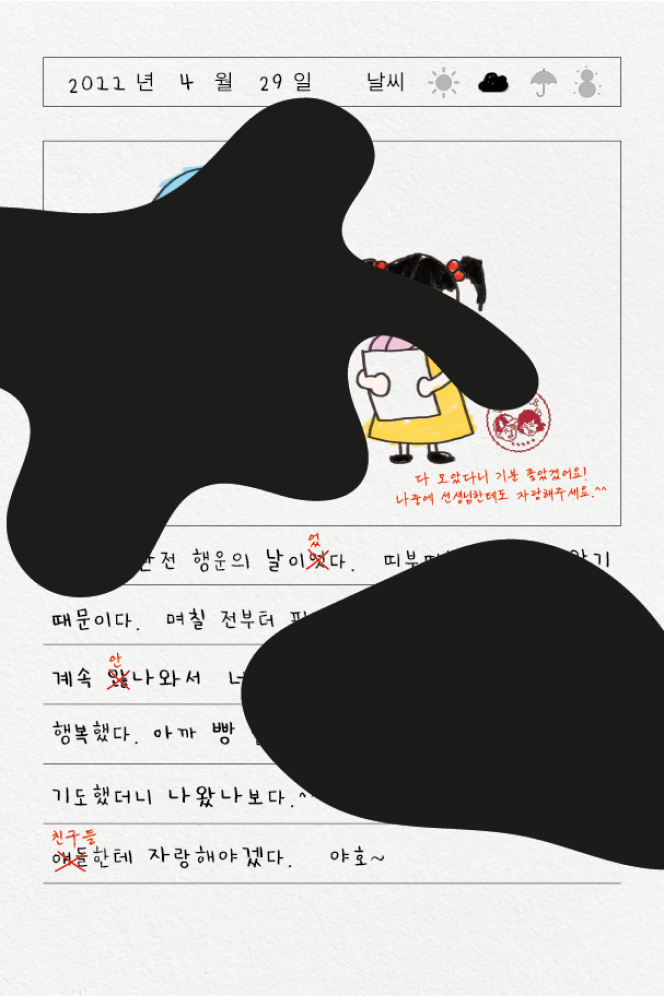 2022년 4월 29일 날씨
다 모았다니 기분 좋았겠어요!
나중에 선생님한테도 자랑해주세요.^^
었
행운의 날이엿다.
때문이다. 며칠 전부터
안
계속 않나와서
행복했다. 아까 빵
기도했더니 나왔나보다.^
친구들
애들한테 자랑해야겠다. 야호~